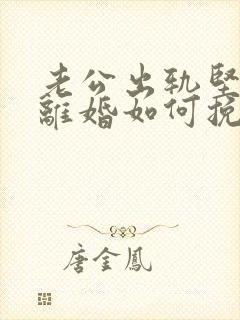 老公出轨坚
離婚如何挽
唐金鳳